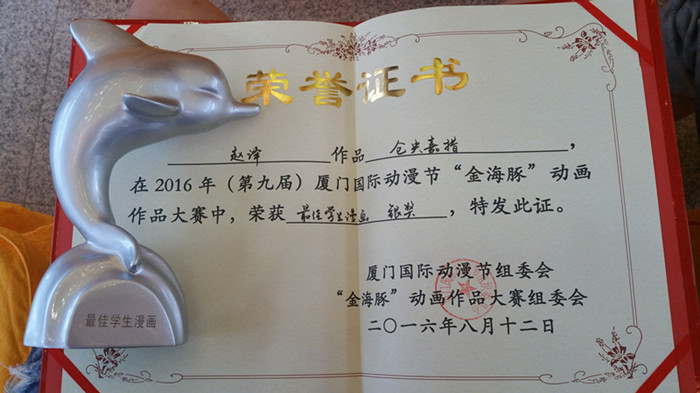 荣誉证书
赵泽 作品 仓央嘉措,
在2016年(第九届)厦门国际动漫节“金海豚”动画
作品大赛中,荣获 最佳学生漫画 银奖,特发此证。
厦门国际动漫节组委会
“金海豚”动画作品大赛组委会
二〇一六年八月十二日
最佳学生漫画